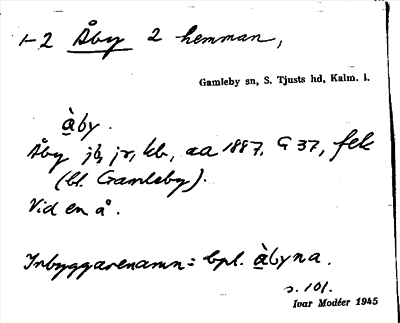 1-2 Åby 2 hemman,
Gamleby sn, S. Tjusts hd, Kalm. l.
àby.
Åby jb, jr, kb, aa 1887, G 37, fek
(bl. Gamleby).
Vid en å.
Inbyggarenamn: bpl. àbyna.
s. 101.
Ivar Modéer 1945